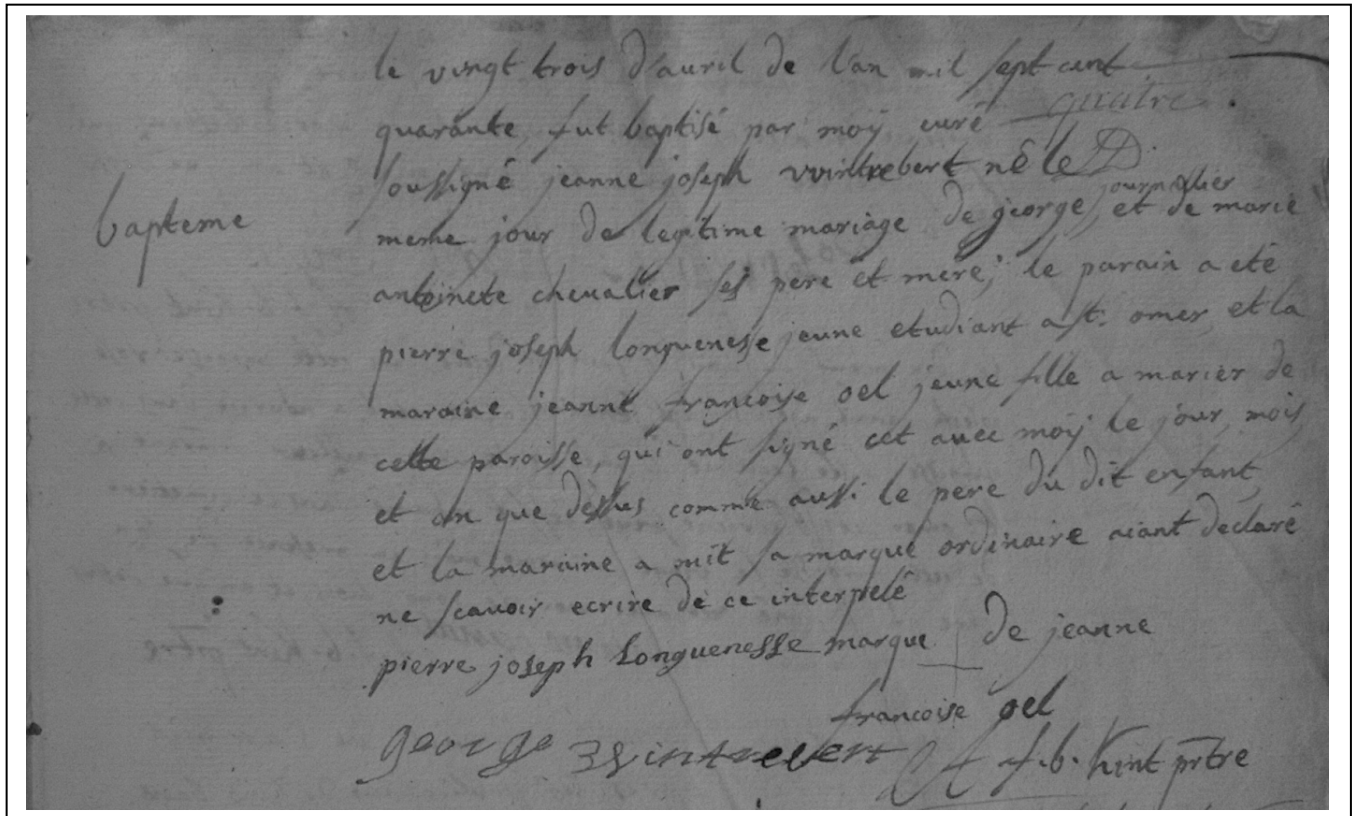 le vingt trois d'auril de l'an mil sept cent
quarante quatre
fut baptisé par moÿ curé
soussigné jeanne joseph vvintrebert né le
journalier
meme jour de legitime mariage de george, et de marie
bapteme
antoinete cheualier ses pere et mere; le parain a eté
pierre joseph longuenesse jeune etudiant a st. omer, et la
maraine jeanne françoise oel jeune fille a marier de
cette paroisse, qui ont signé cet auec moÿ le jour, mois,
et an que dessus comme aussi le pere du dit enfant,
et la maraine a mit sa marque ordinaire aiant declaré
ne scauoir ecrire de ce interpelé
pierre joseph Longuenesse marque de jeanne
francoise oel
george Wintrebert
f.b. Kint prtre